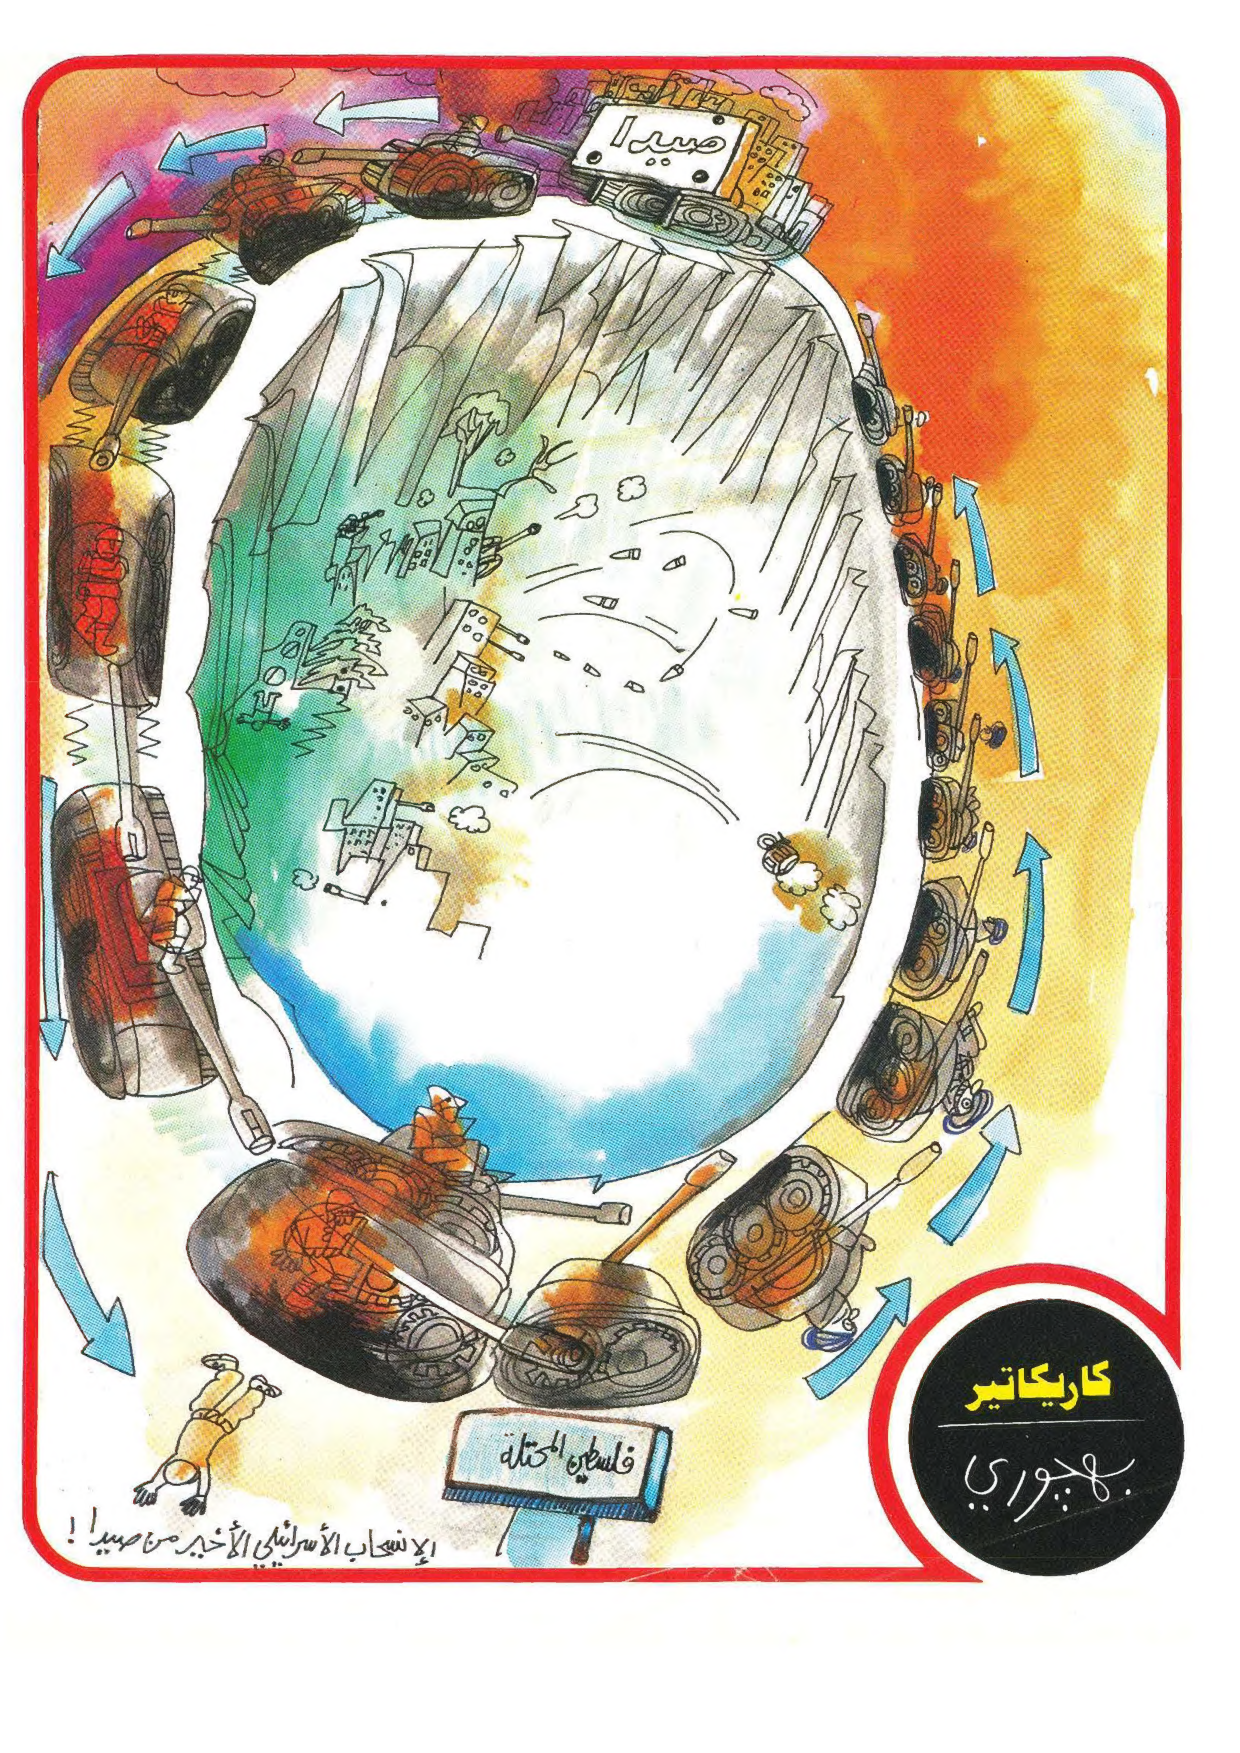 صيدا
فلسطين المحتلة
الإنسحاب الأسرائيلي الأخير من صيدا !
كاريكاتير
بهچوري